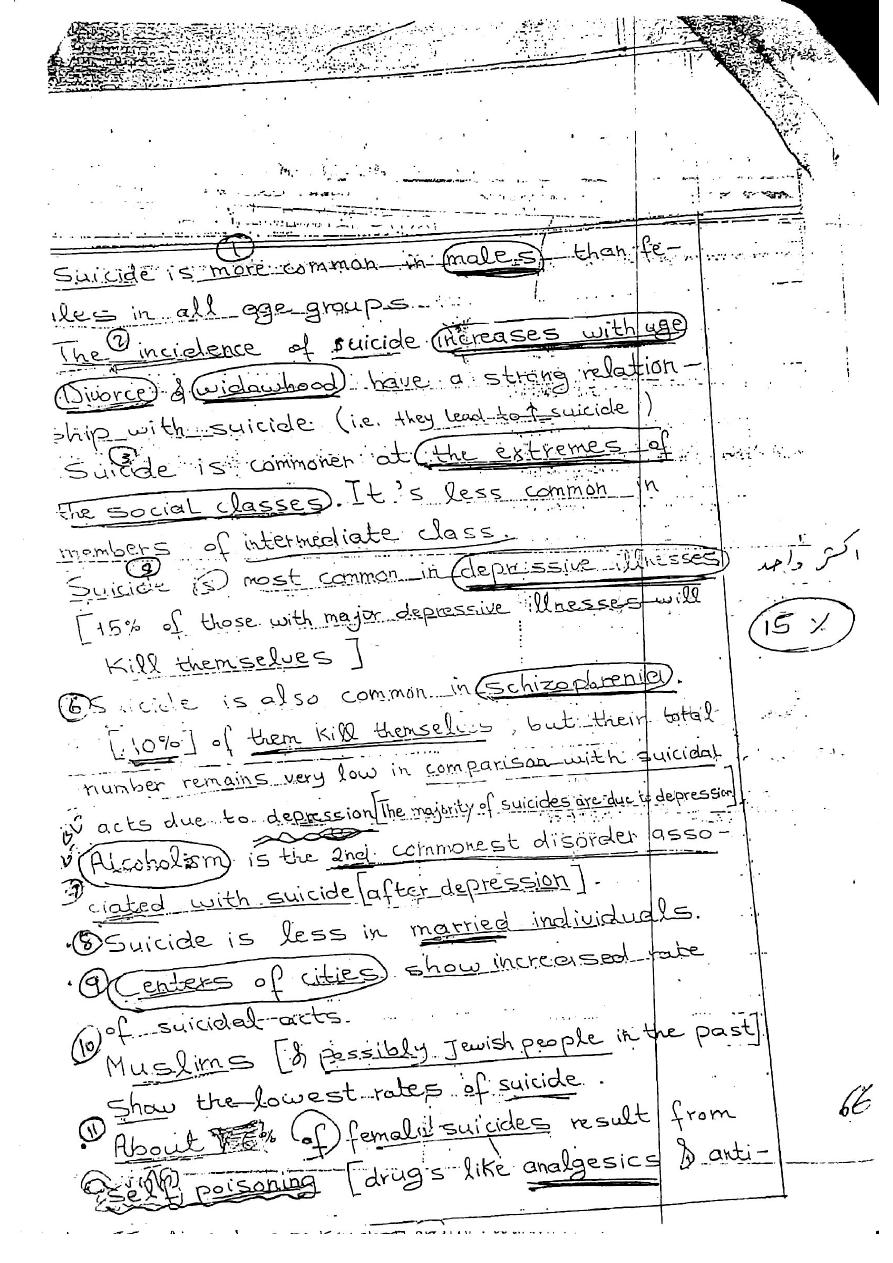 ①
Suicide is more common in males than fe-
les in all age groups.
The ② incidence of suicide increases with age
Divorce & widowhood have a strong relation-
ship with suicide (i.e. they lead to ↑ suicide)
③
Suicide is commoner at the extremes of
the social classes. It's less common in
members of intermediate class.
④
Suicide is most common in depressive illnesses
اكثر واحد
[15% of those with major depressive illnesses will
15 %
Kill themselves]
⑥ Suicide is also common in schizophrenia.
[10%] of them kill themselves, but their total
number remains very low in comparison with suicidal
acts due to depression [The majority of suicides are due to depression]
Alcoholism is the 2nd commonest disorder asso-
7 ciated with suicide [after depression].
⑧ Suicide is less in married individuals.
⑨ Centers of cities show increased rate
of suicidal acts.
⑩
Muslims [& possibly Jewish people in the past]
show the lowest rates of suicide.
⑪
About % of female suicides result from
self poisoning [drug's like analgesics & anti-